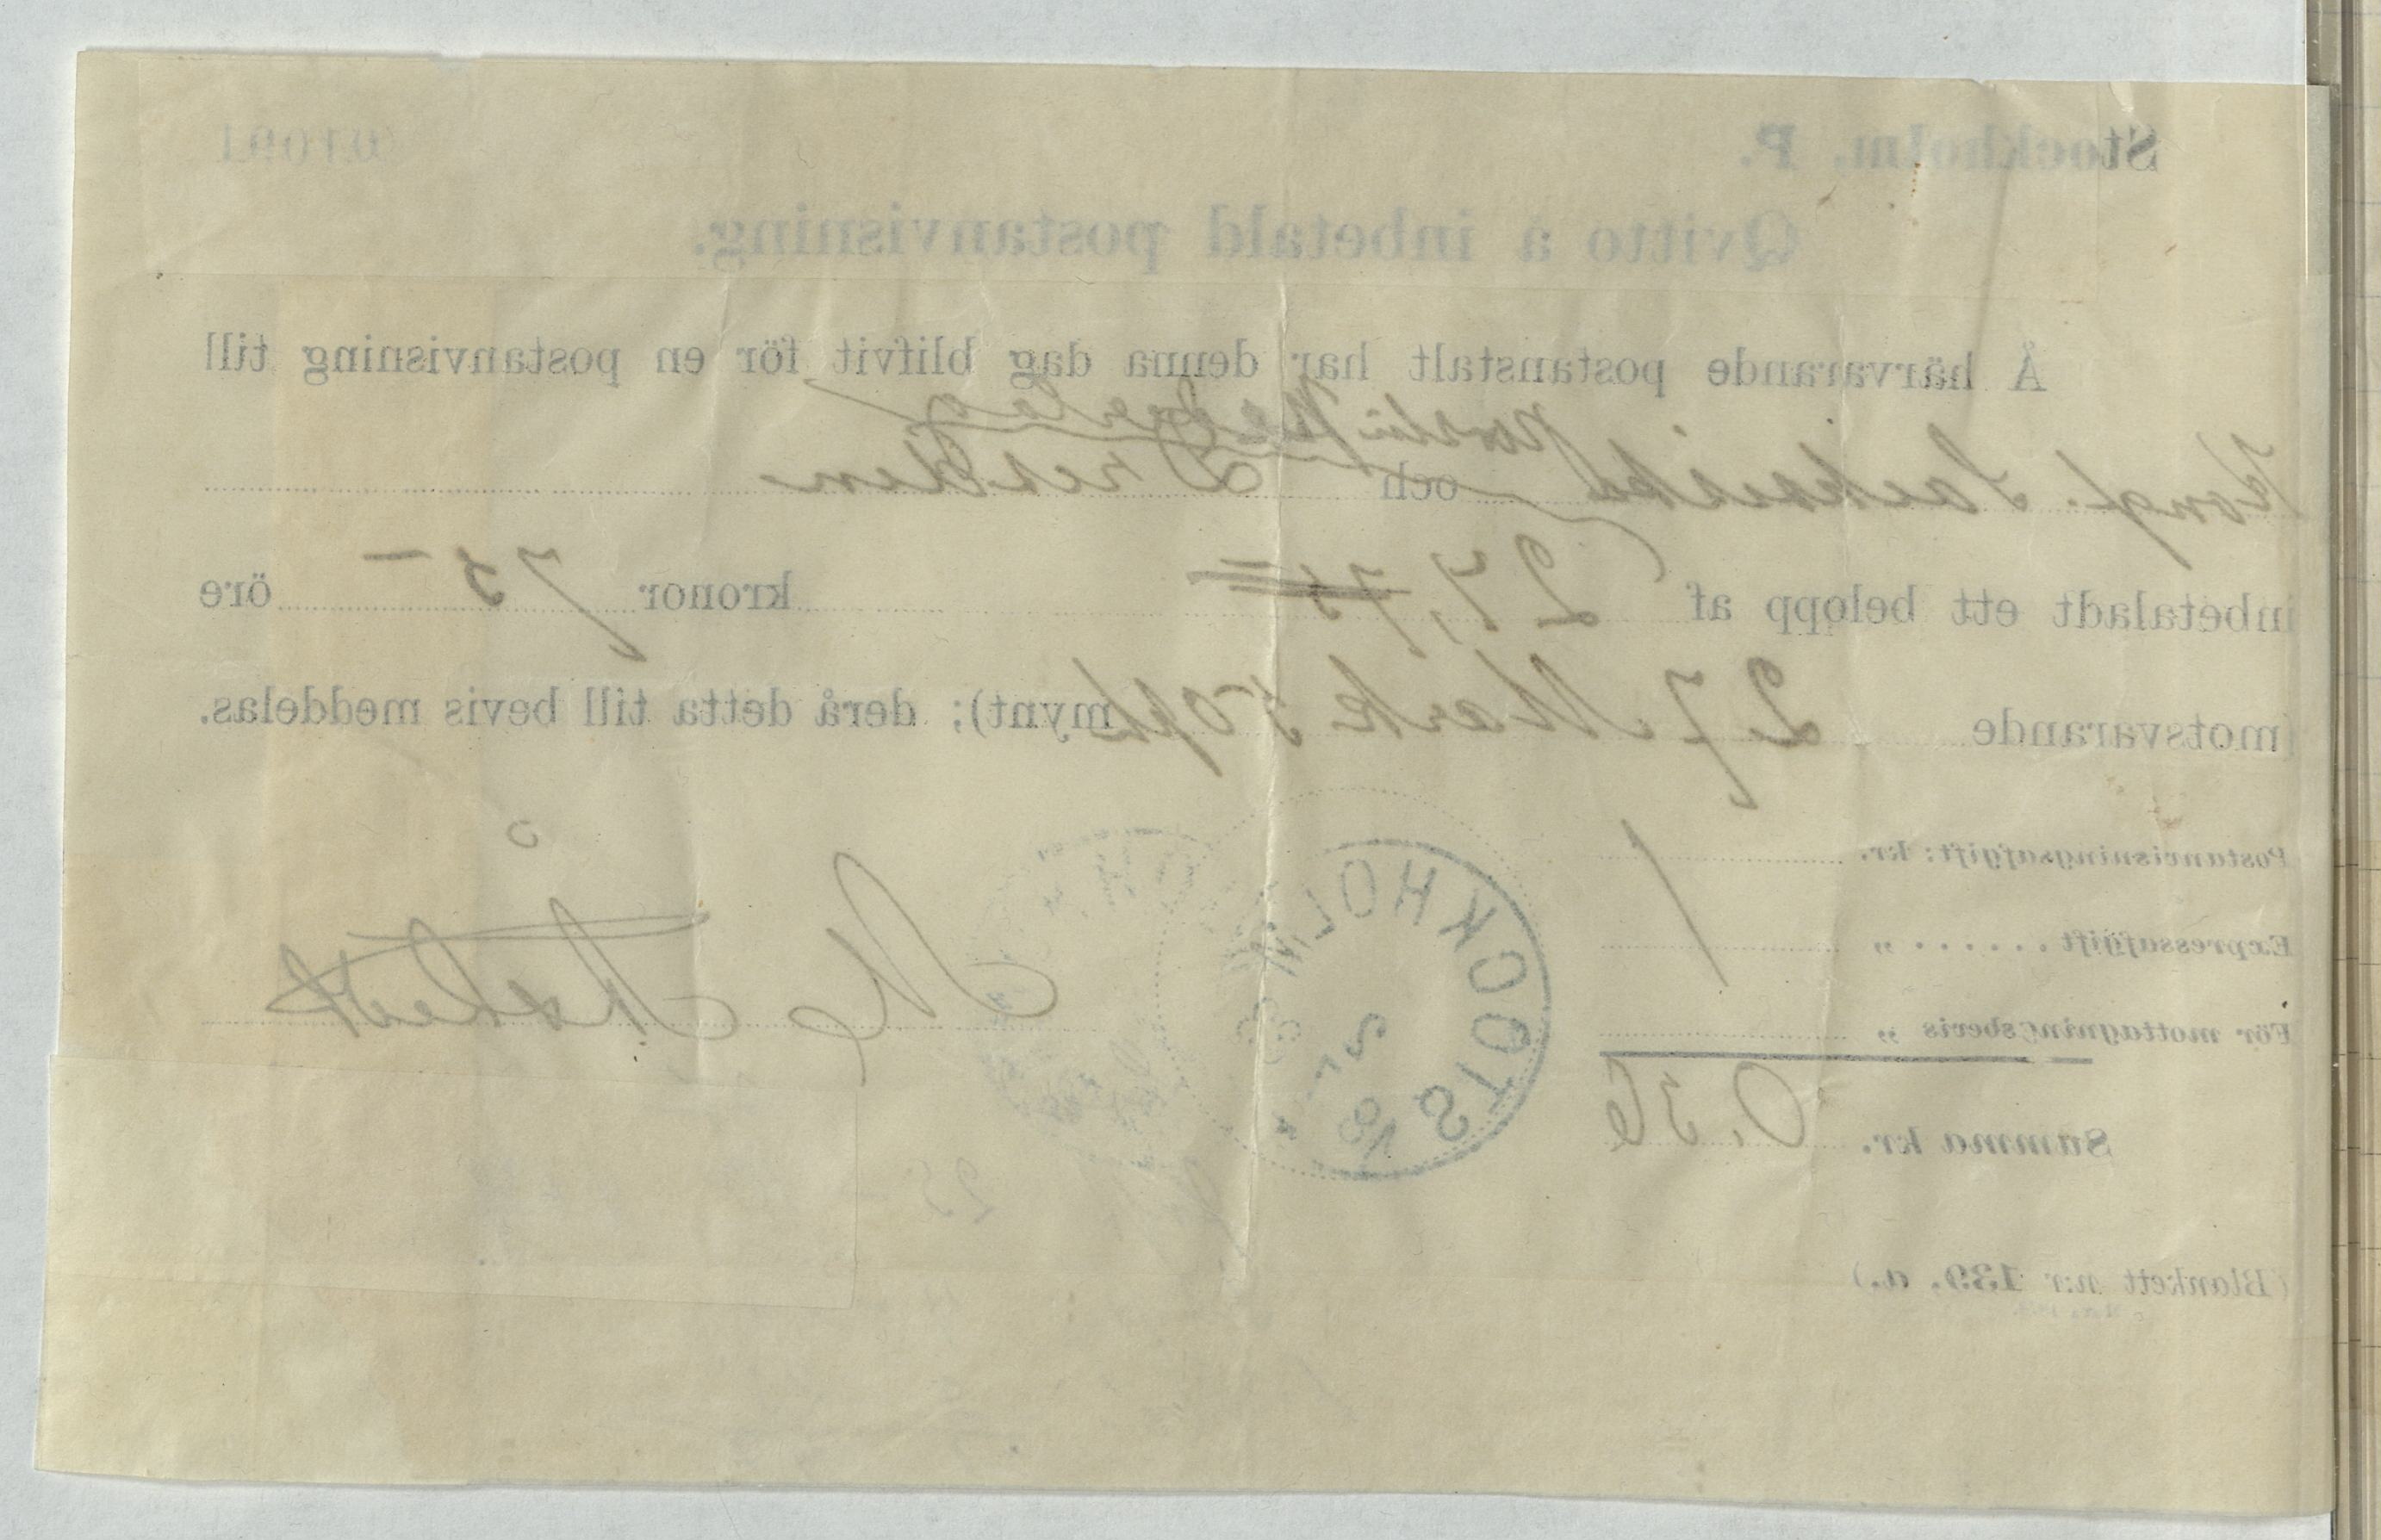 Stockholm. P.
Qvitto å inbetald postanvisning.
Å härvarande postanstalt har denna dag blifvit för en postanvisning till
Kongl. Sachsiska
och Dresden
inbetaladt ett belopp af 27, kronor 75 öre
(motsvarande 27 Mark 50 mynt); derå detta till bevis meddelas.
Postanvisningsafgift: kr.
Expressafgift . . . . . . „
För mottagningsbevis „
Summa kr. 0.36
STOCKHOLM
25
(Blankett n:r 139. a.)